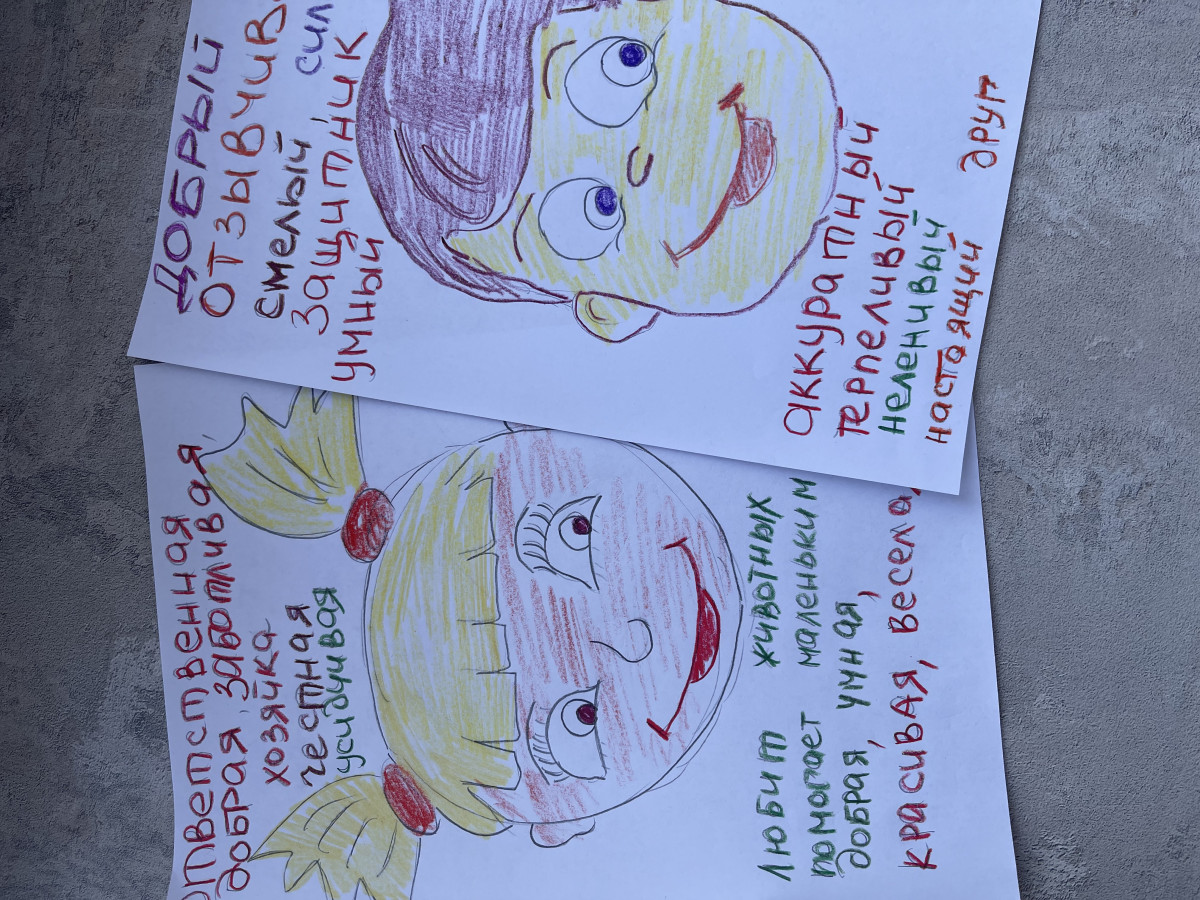 ответственная
добрая, заботливая,
хозяйка
честная
усидчивая
любит животных
помогает маленьким
добрая, умная,
красивая, весела
ДОБРЫЙ
ОТЗЫВЧИВ
смелый сил
защитник
умный
аккуратный
терпеливый
неленивый
настоящий друг